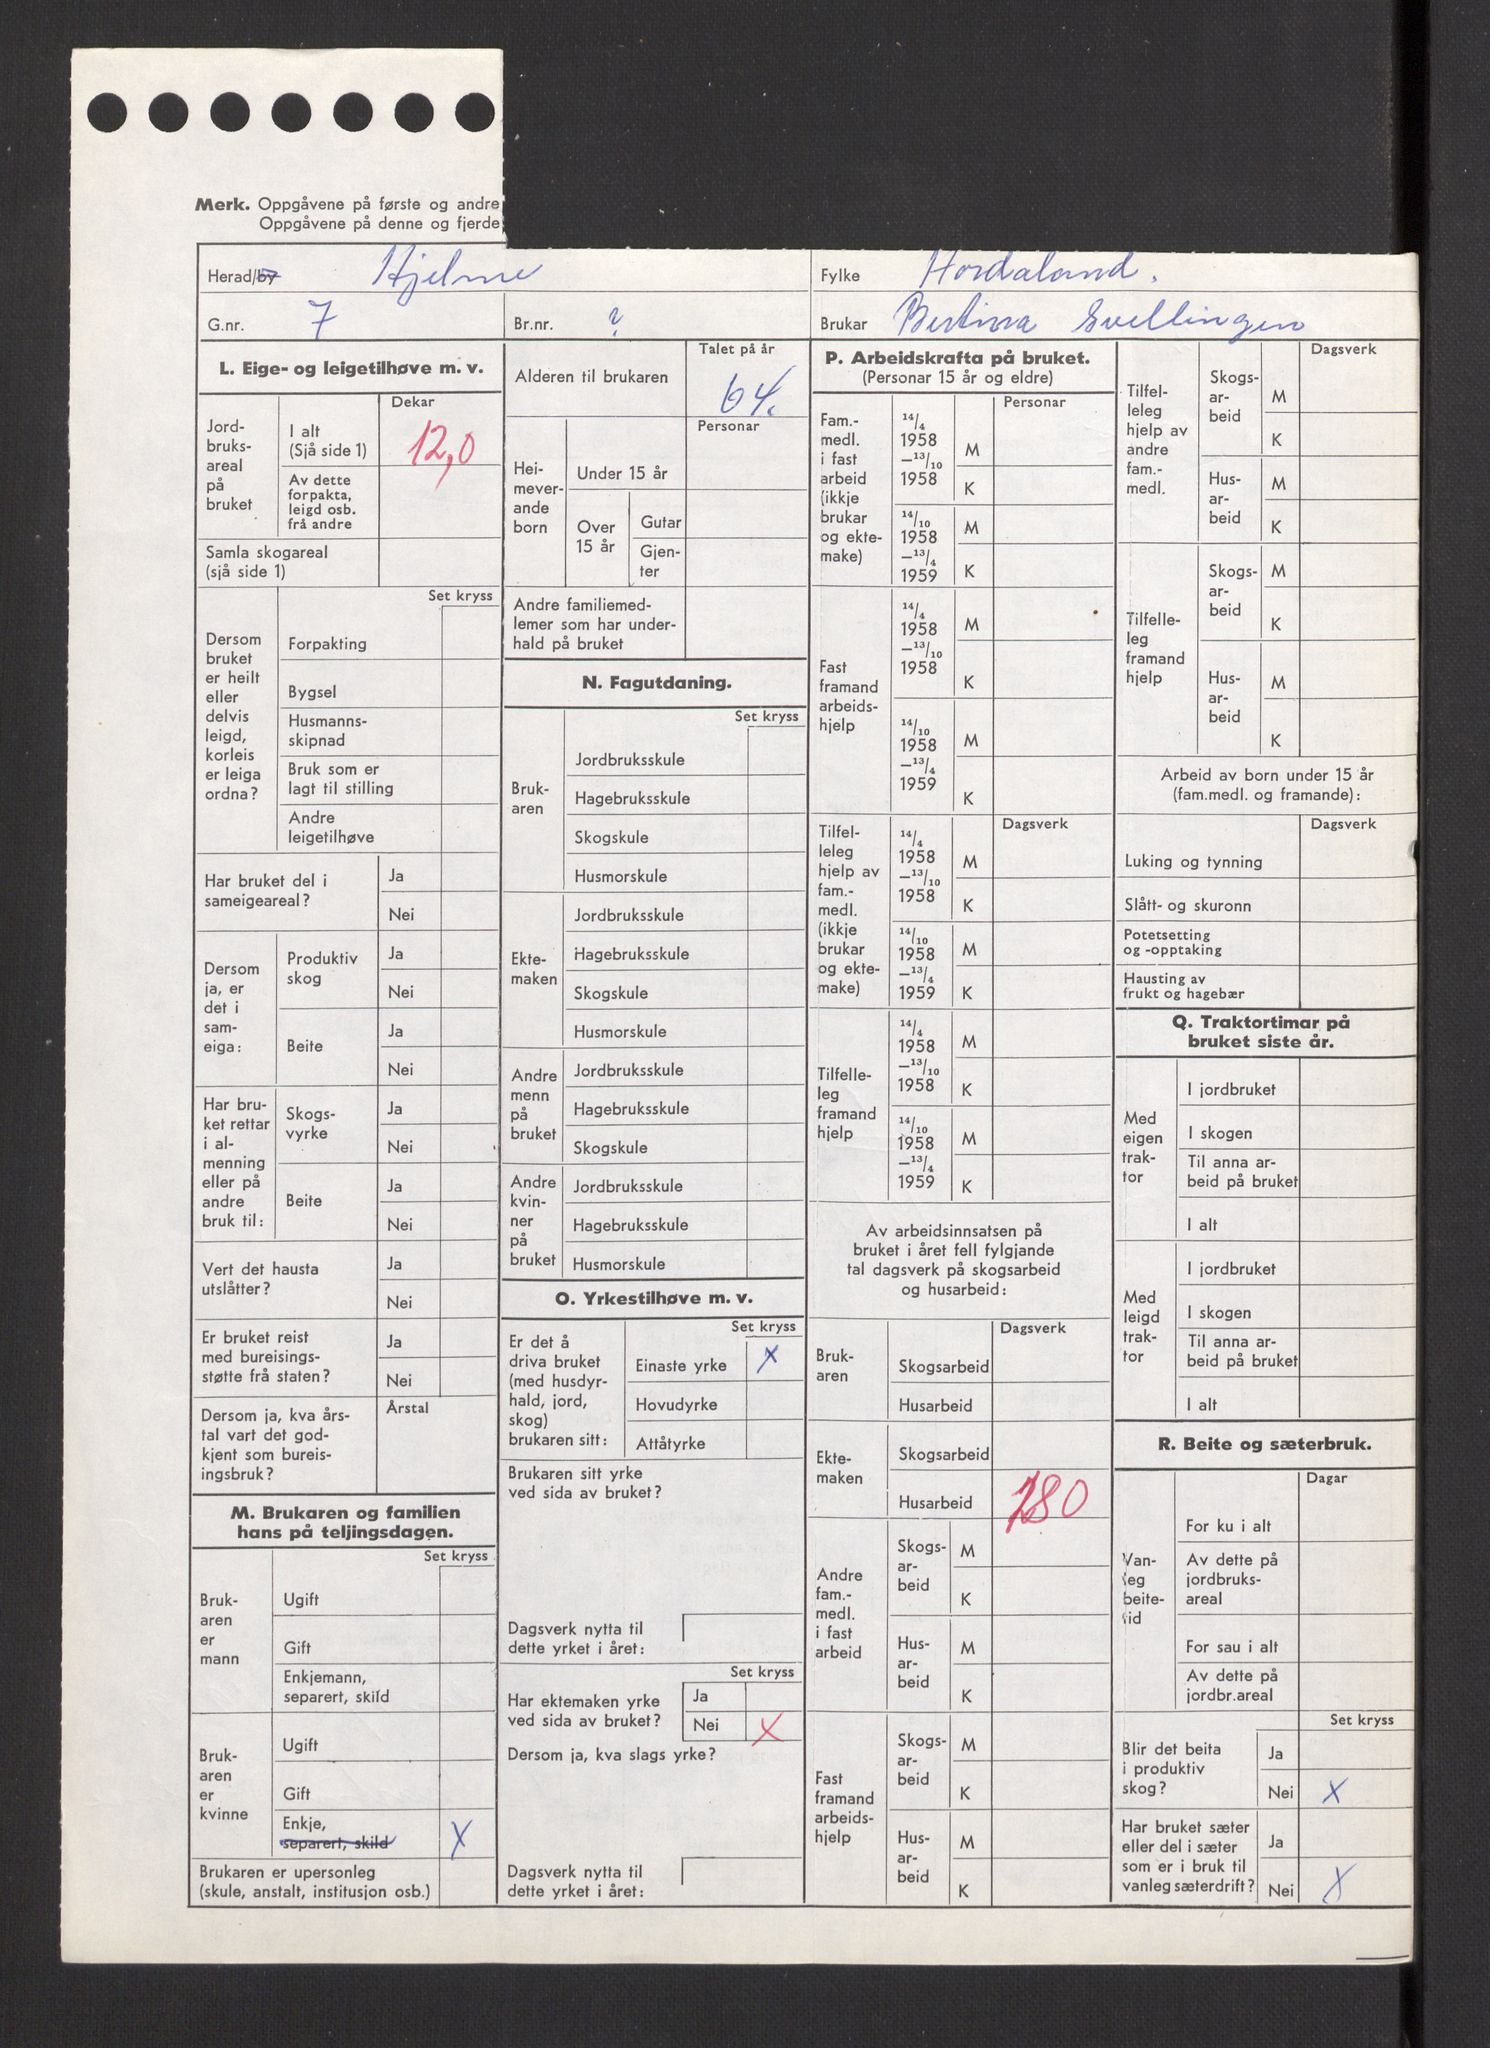 Merk. Oppgåvene på første og andre
Oppgåvene på denne og fjerde
Herad/by Hjelme
Fylke Hordaland.
G.nr. 7
Br.nr. ?
Brukar Bertina Svellingen
L. Eige- og leigetilhøve m. v.
Dekar
Jord-
bruks-
areal
på
bruket
I alt
(Sjå side 1)
12,0
Av dette
forpakta,
leigd osb.
frå andre
Samla skogareal
(sjå side 1)
Set kryss
Dersom
bruket
er heilt
eller
delvis
leigd,
korleis
er leiga
ordna?
Forpakting
Bygsel
Husmanns-
skipnad
Bruk som er
lagt til stilling
Andre
leigetilhøve
Har bruket del i
sameigeareal?
Ja
Nei
Dersom
ja, er
det i
sam-
eiga:
Produktiv
skog
Ja
Nei
Beite
Ja
Nei
Har bru-
ket rettar
i al-
menning
eller på
andre
bruk til:
Skogs-
vyrke
Ja
Nei
Beite
Ja
Nei
Vert det hausta
utslåtter?
Ja
Nei
Er bruket reist
med bureisings-
støtte frå staten?
Ja
Nei
Dersom ja, kva års-
tal vart det god-
kjent som bureis-
ingsbruk?
Årstal
M. Brukaren og familien
hans på teljingsdagen.
Set kryss
Bruk-
aren
er
mann
Ugift
Gift
Enkjemann,
separert, skild
Bruk-
aren
er
kvinne
Ugift
Gift
Enkje,
separert, skild
X
Brukaren er upersonleg
(skule, anstalt, institusjon osb.)
Talet på år
Alderen til brukaren
64.
Personar
Hei-
mever-
ande
born
Under 15 år
Over
15 år
Gutar
Gjen-
ter
Andre familiemed-
lemer som har under-
hald på bruket
N. Fagutdaning.
Set kryss
Bruk-
aren
Jordbruksskule
Hagebruksskule
Skogskule
Husmorskule
Ekte-
maken
Jordbruksskule
Hagebruksskule
Skogskule
Husmorskule
Andre
menn
på
bruket
Jordbruksskule
Hagebruksskule
Skogskule
Andre
kvin-
ner
på
bruket
Jordbruksskule
Hagebruksskule
Husmorskule
O. Yrkestilhøve m. v.
Set kryss
Er det å
driva bruket
(med husdyr-
hald, jord,
skog)
brukaren sitt:
Einaste yrke
X
Hovudyrke
Attåtyrke
Brukaren sitt yrke
ved sida av bruket?
Dagsverk nytta til
dette yrket i året:
Set kryss
Har ektemaken yrke
ved sida av bruket?
Ja
Nei
X
Dersom ja, kva slags yrke?
Dagsverk nytta til
dette yrket i året:
P. Arbeidskrafta på bruket.
(Personar 15 år og eldre)
Personar
Fam.-
medl.
i fast
arbeid
(ikkje
brukar
og ekte-
make)
14/4
1958
—13/10
1958
M
K
14/10
1958
—13/4
1959
M
K
Fast
framand
arbeids-
hjelp
14/4
1958
—13/10
1958
M
K
14/10
1958
—13/4
1959
M
K
Dagsverk
Tilfel-
leleg
hjelp av
fam.-
medl.
(ikkje
brukar
og ekte-
make)
14/4
1958
—13/10
1958
M
K
14/10
1958
—13/4
1959
M
K
Tilfelle-
leg
framand
hjelp
14/4
1958
—13/10
1958
M
K
14/10
1958
—13/4
1959
M
K
Av arbeidsinnsatsen på
bruket i året fell fylgjande
tal dagsverk på skogsarbeid
og husarbeid:
Dagsverk
Bruk-
aren
Skogsarbeid
Husarbeid
Ekte-
maken
Skogsarbeid
Husarbeid
280
Andre
fam.-
medl.
i fast
arbeid
Skogs-
ar-
beid
M
K
Hus-
ar-
beid
M
K
Fast
framand
arbeids-
hjelp
Skogs-
ar-
beid
M
K
Hus-
ar-
beid
M
K
Dagsverk
Tilfel-
leleg
hjelp av
andre
fam.-
medl.
Skogs-
ar-
beid
M
K
Hus-
ar-
beid
M
K
Tilfelle-
leg
framand
hjelp
Skogs-
ar-
beid
M
K
Hus-
ar-
beid
M
K
Arbeid av born under 15 år
(fam.medl. og framande):
Dagsverk
Luking og tynning
Slått- og skuronn
Potetsetting
og -opptaking
Hausting av
frukt og hagebær
Q. Traktortimar på
bruket siste år.
Med
eigen
trak-
tor
I jordbruket
I skogen
Til anna ar-
beid på bruket
I alt
Med
leigd
trak-
tor
I jordbruket
I skogen
Til anna ar-
beid på bruket
I alt
R. Beite og sæterbruk.
Dagar
Van-
leg
beite-
tid
For ku i alt
Av dette på
jordbruks-
areal
For sau i alt
Av dette på
jordbr.areal
Set kryss
Blir det beita
i produktiv
skog?
Ja
Nei
X
Har bruket sæter
eller del i sæter
som er i bruk til
vanleg sæterdrift?
Ja
Nei
X